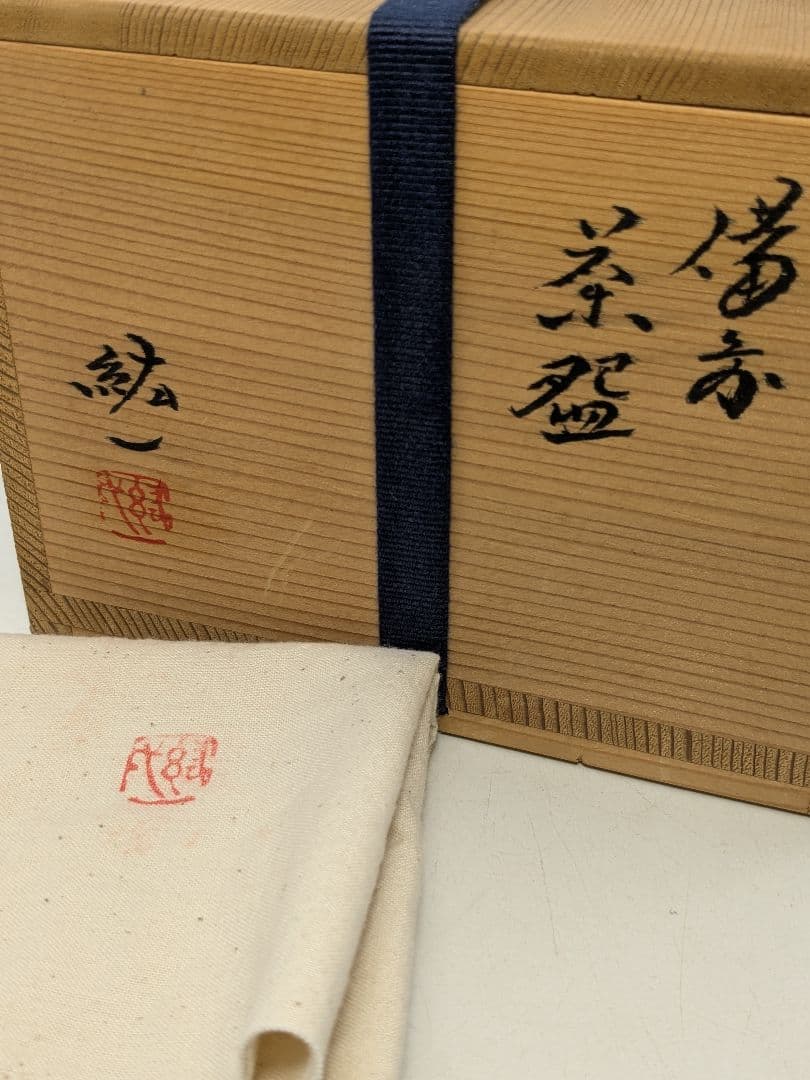 備前
茶盌
紘一